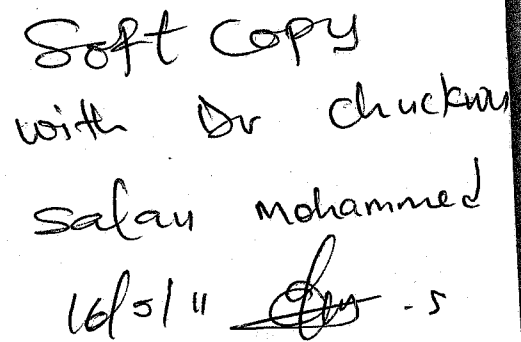 Soft Copy
with Dr
Salau Mohammed
16/5/11